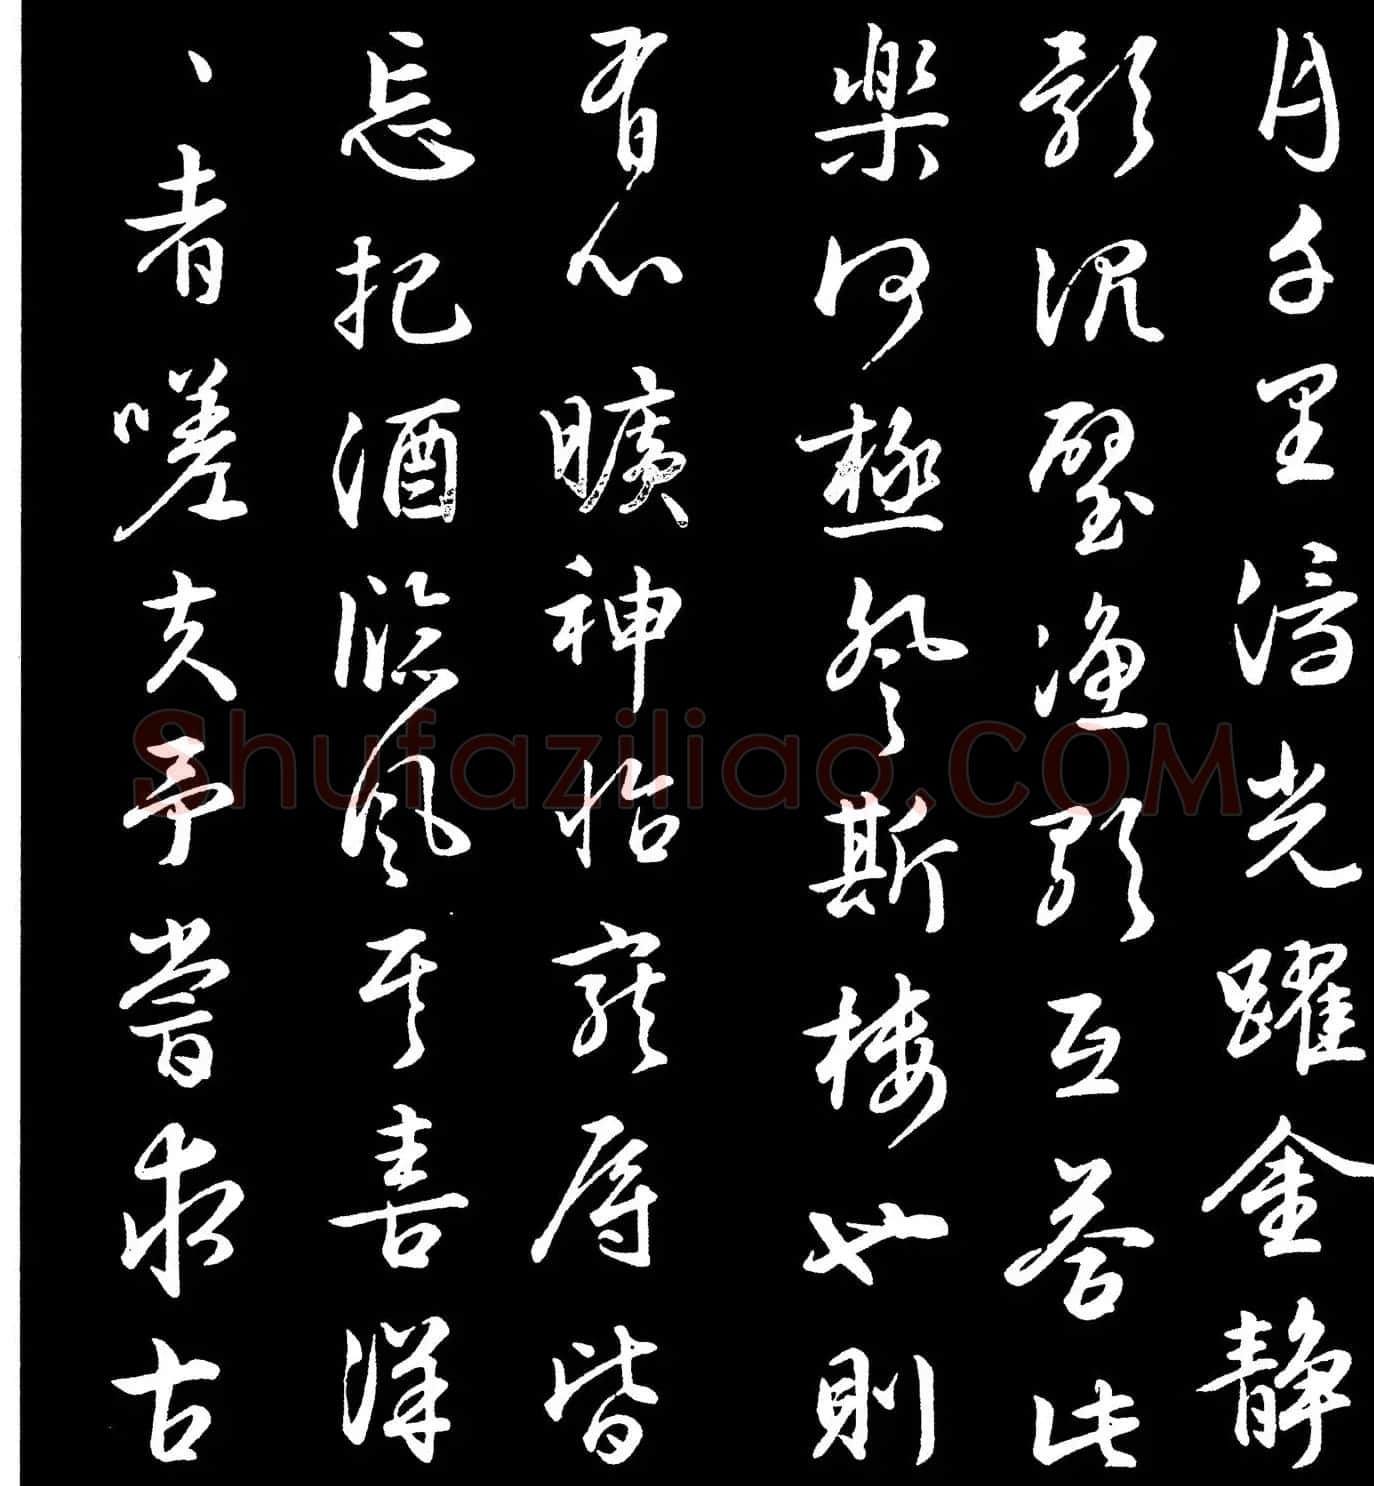 月千里浮光躍金静
影沉璧漁歌互答此
樂何極登斯樓也則
有心曠神怡寵辱皆
忘把酒臨風其喜洋
、者嗟夫予嘗求古
Shufaziliao.COM